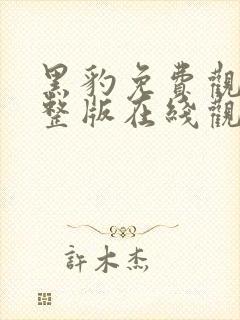 黑豹免費觀
整版在綫觀
許木杰